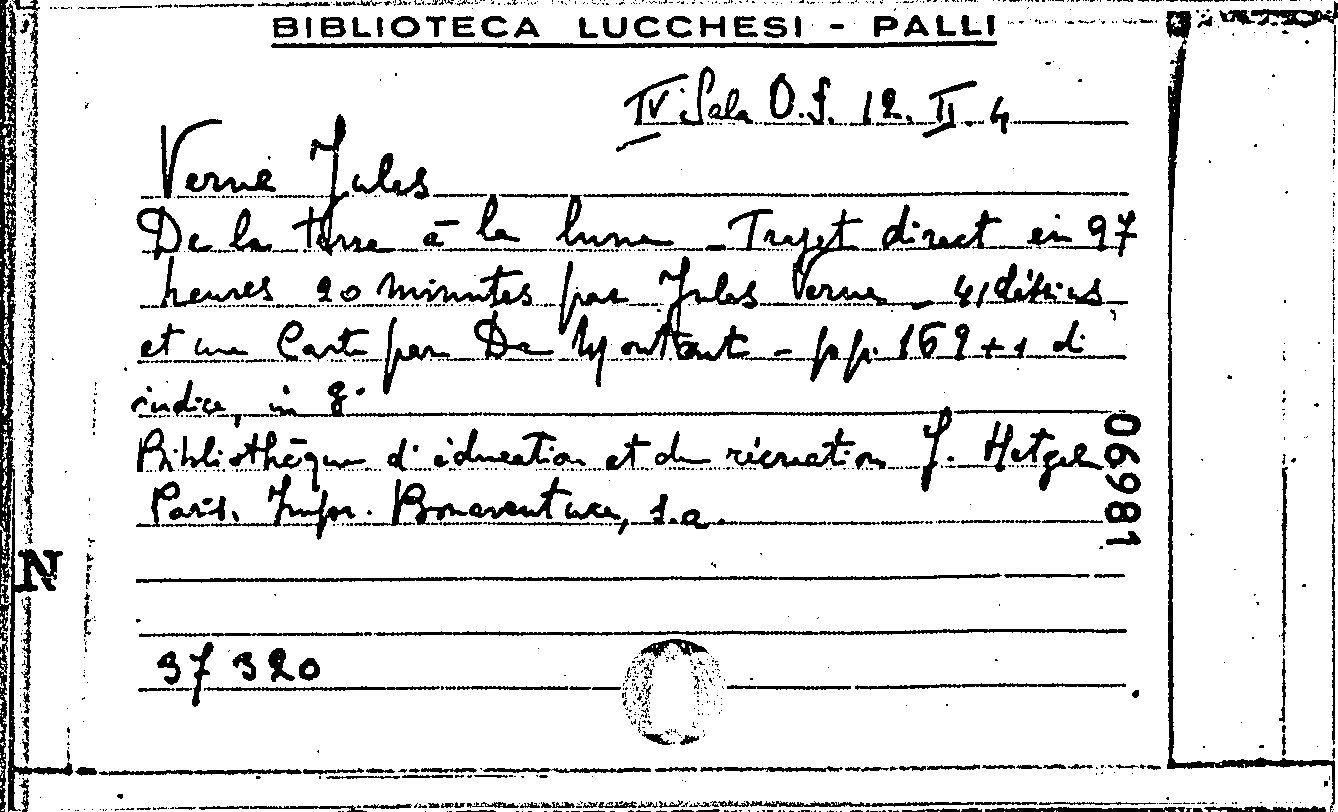 BIBLIOTECA LUCCHESI - PALLI
IV Sala O.S. 12. II. 4
Verne Jules
De la terre à la lune - Trajet direct en 97
heures 20 minutes par Jules Verne - 41 dessins
et une Carte par De Montaut - pp. 169 + 1 di
indice, in 8°
Bibliothèque d'éducation et du récreation J. Hetzel
Paris. Impr. Bonaventure, s.a.
06981
N
37320